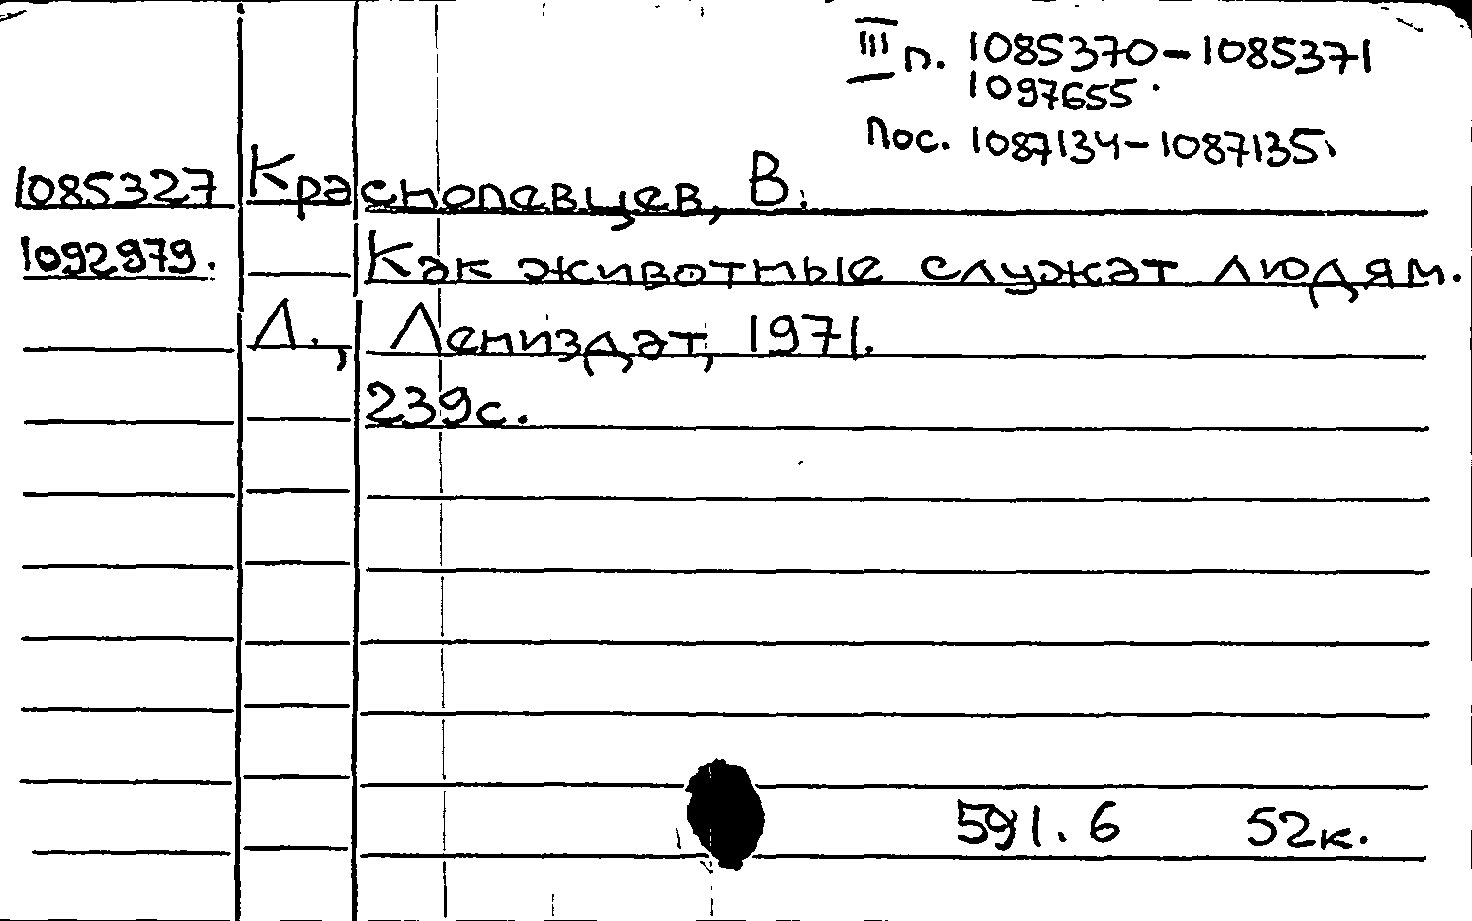 III п. 1085370-1085371
1097655.
пос. 1087134-1087135
1085327 Краснопевцев, В.
1092979. Как животные служат людям.
Л., Лениздат, 1971.
239с.
591.6 52к.